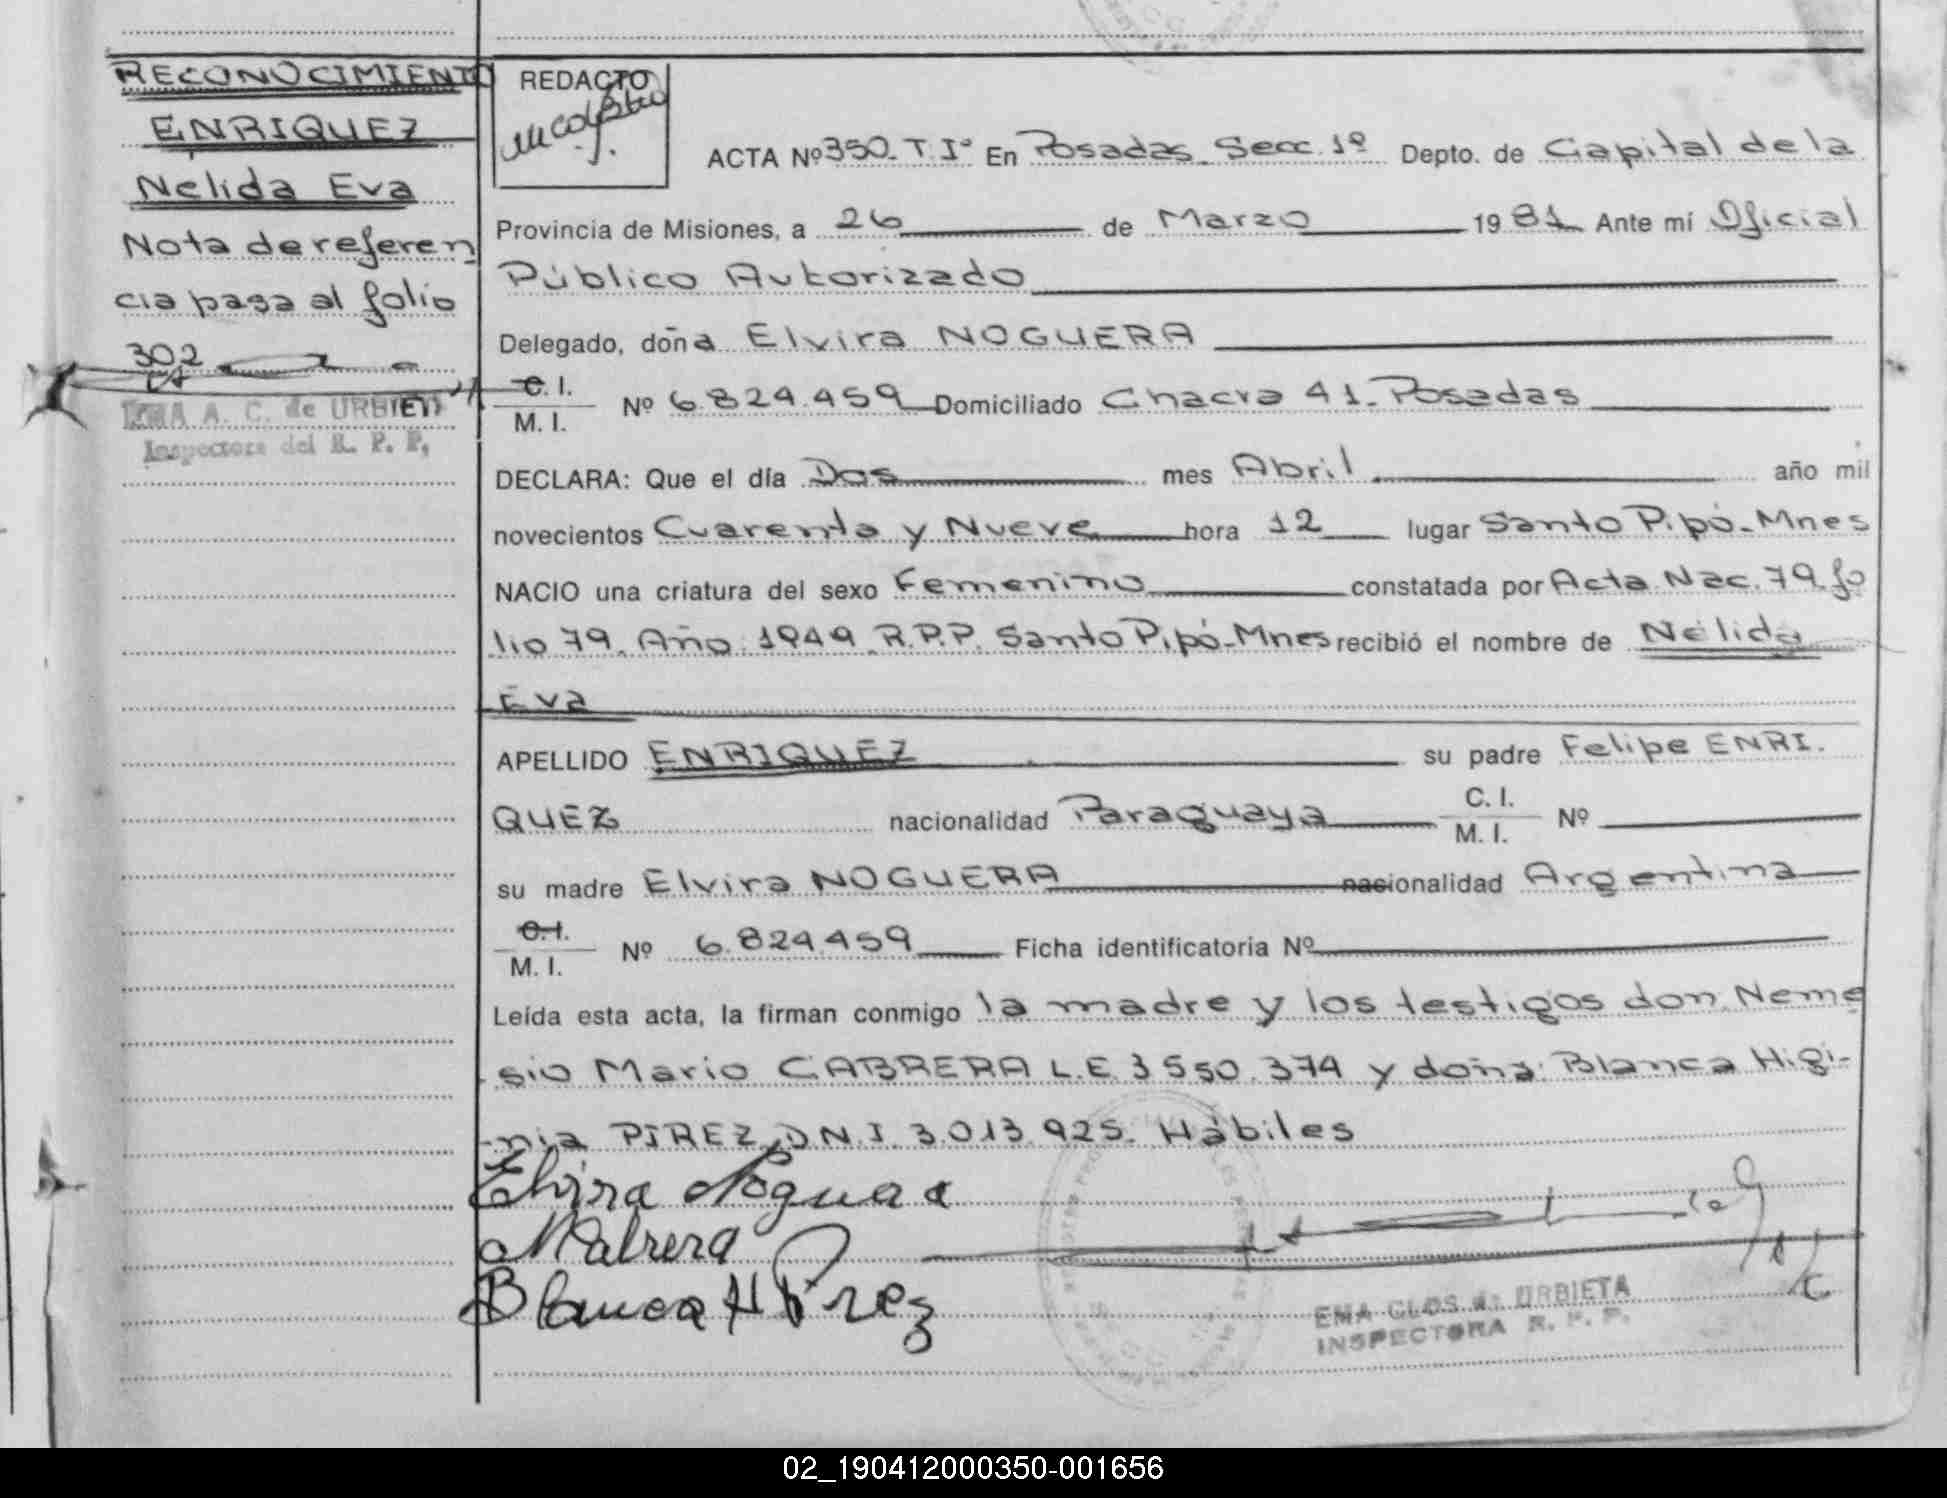 RECONOCIMIENTO
ENRIQUEZ
Nelida Eva
Nota de referen
cia pasa al folio
302
EMA A. C. de URBIETA
Inspectora del R. P. P.
REDACTO
ACTA Nº 350. T. Iº En Posadas. Secc. 1º Depto. de Capital de la
Provincia de Misiones, a 26 de Marzo 1981 Ante mí Oficial
Público Autorizado
Delegado, doña Elvira NOGUERA
C. I.
M. I.
Nº 6.824.459 Domiciliado Chacra 41. Posadas
DECLARA: Que el día Dos mes Abril año mil
novecientos Cuarenta y Nueve hora 12 lugar Santo Pipó-Mnes
NACIO una criatura del sexo Femenino constatada por Acta Nac. 79 fo
lio 79. Año 1949 R.P.P. Santo Pipó-Mnes recibió el nombre de Nélida
Eva
APELLIDO ENRIQUEZ su padre Felipe ENRI.
QUEZ nacionalidad Paraguaya C. I.
M. I. Nº
su madre Elvira NOGUERA nacionalidad Argentina
C. I.
M. I.
Nº 6.824.459 Ficha identificatoria Nº
Leída esta acta, la firman conmigo la madre y los testigos don Neme
sio Mario CABRERA L.E. 3 550.374 y doña Blanca Higi-
nia PIREZ, D.N.I. 3.013.925. Hábiles
Elvira Noguera
MCabrera
Blanca H Pirez
EMA CLOS de URBIETA
INSPECTORA R. P. P.
02_190412000350-001656